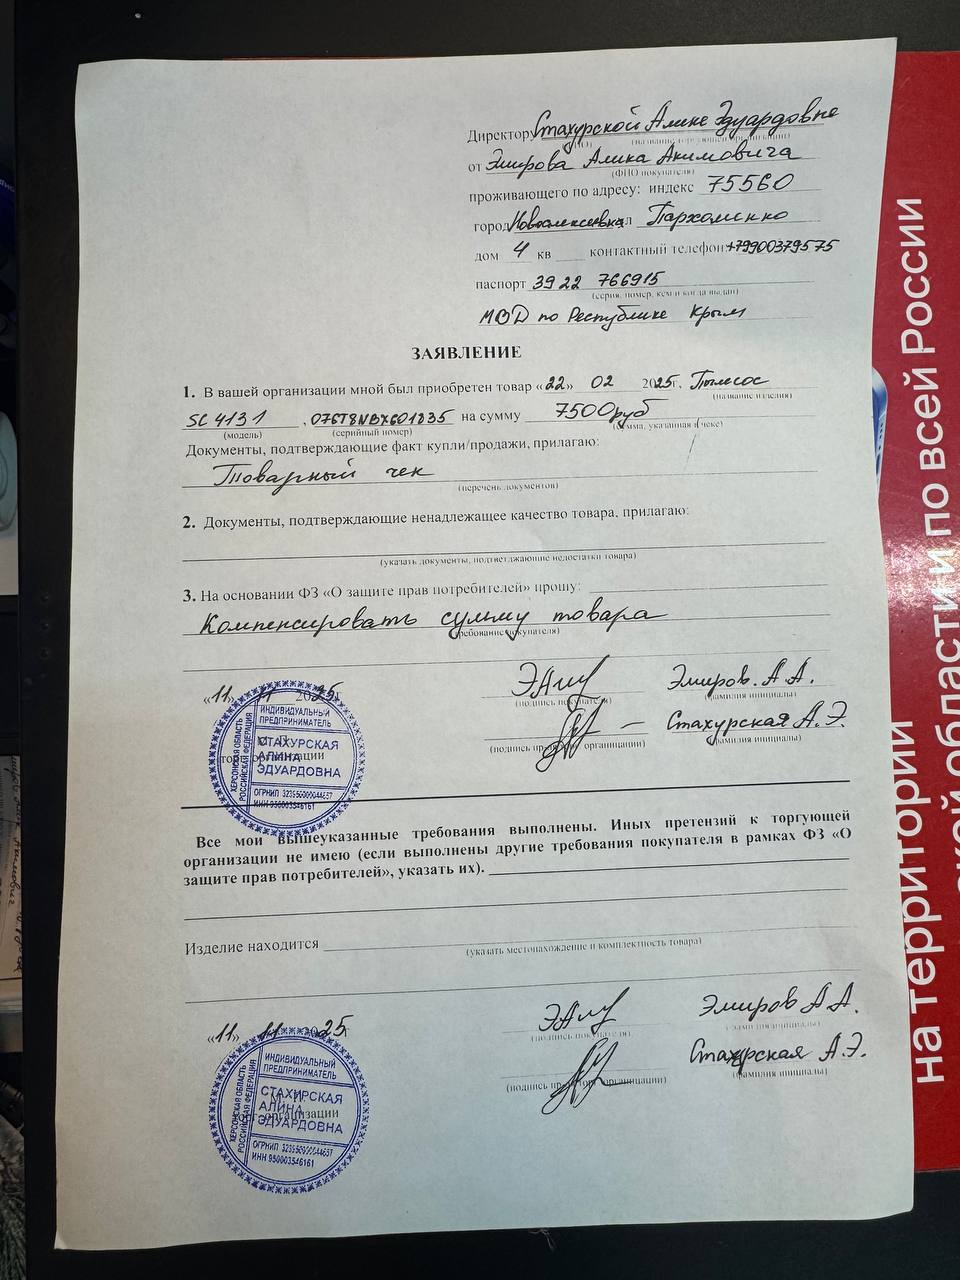 Директору Стахурской Алине Эдуардовне
от Эмирова Алика Акимовича
(ФИО покупателя)
проживающего по адресу: индекс 75560
город Новоалексеевка ул Пархоменко
дом 4 кв ___ контактный телефон +79900379575
паспорт 39 22 766915
(серия, номер, кем и когда выдан)
МВД по Республике Крым
ЗАЯВЛЕНИЕ
1. В вашей организации мной был приобретен товар «22» 02 2025г. Пылесос
(название изделия)
SC 4131, 076T8NBX601835 на сумму 7500 руб
(модель) (серийный номер) (сумма, указанная в чеке)
Документы, подтверждающие факт купли/продажи, прилагаю:
Товарный чек
(перечень документов)
2. Документы, подтверждающие ненадлежащее качество товара, прилагаю:
(указать документы, подтверждающие недостатки товара)
3. На основании ФЗ «О защите прав потребителей» прошу:
Компенсировать сумму товара
(требование покупателя)
«11» 11 2025г ЭАлу Эмиров. А. А.
(подпись покупателя) (фамилия инициалы)
Стахурская А. Э.
(подпись прод. торг. организации) (фамилия инициалы)
М. П.
торг. организации
ХЕРСОНСКАЯ ОБЛАСТЬ
РОССИЙСКАЯ ФЕДЕРАЦИЯ
ИНДИВИДУАЛЬНЫЙ
ПРЕДПРИНИМАТЕЛЬ
СТАХУРСКАЯ
АЛИНА
ЭДУАРДОВНА
ОГРНИП 323950000044657
ИНН 950003546161
Все мои вышеуказанные требования выполнены. Иных претензий к торгующей
организации не имею (если выполнены другие требования покупателя в рамках ФЗ «О
защите прав потребителей», указать их).
Изделие находится
(указать местонахождение и комплектность товара)
«11» 11 2025г ЭАлу Эмиров А А.
(подпись покупателя) (фамилия инициалы)
Стахурская А. Э.
(подпись прод. торг. организации) (фамилия инициалы)
М. П.
торг. организации
ХЕРСОНСКАЯ ОБЛАСТЬ
РОССИЙСКАЯ ФЕДЕРАЦИЯ
ИНДИВИДУАЛЬНЫЙ
ПРЕДПРИНИМАТЕЛЬ
СТАХИРСКАЯ
АЛИНА
ЭДУАРДОВНА
ОГРНИП 323950000044657
ИНН 950003546161
на территории
ской области и по всей России